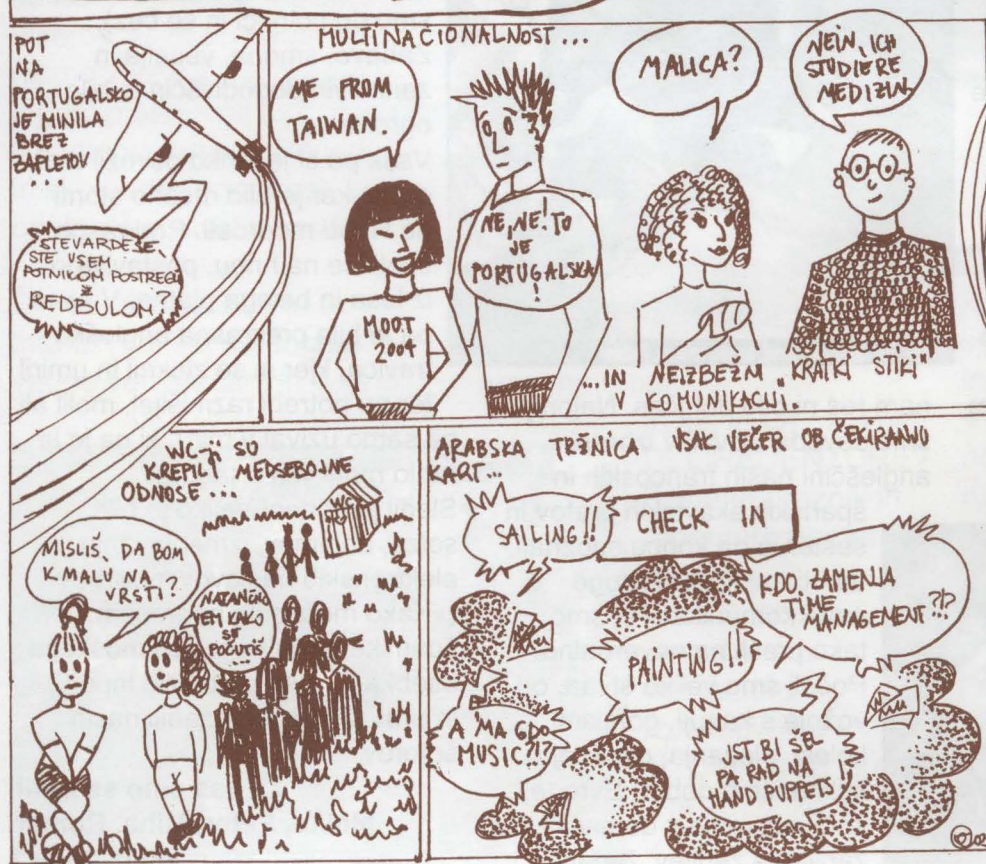 POT
NA
PORTUGALSKO
JE MINILA
BREZ
ZAPLETOV
STEVARDESE,
STE VSEM
POTNIKOM POSTREGLE
Z
REDBULOM?
MULTINACIONALNOST...
ME FROM
TAIWAN.
MOOT
2004
NE, NE! TO
JE
PORTUGALSKA
!
MALICA?
NEIN, ICH
STUDIERE
MEDIZIN.
...IN NEIZBEŽNI „KRATKI STIKI"
V KOMUNIKACIJI.
WC-JI SO
KREPILI MEDSEBOJNE
ODNOSE...
WC
MISLIŠ, DA BOM
KMALU NA
VRSTI?
VEM KAKO
SE
POČUTIŠ
ARABSKA TRŽNICA VSAK VEČER OB ČEKIRANJU
KART.
SAILING?!
CHECK IN
KDO ZAMENJA
TIME
MANAGEMENT?!?
PAINTING?!
A MA GDO
MUSIC?!?
JST BI ŠEL
PA RAD NA
HAND PUPPETS!